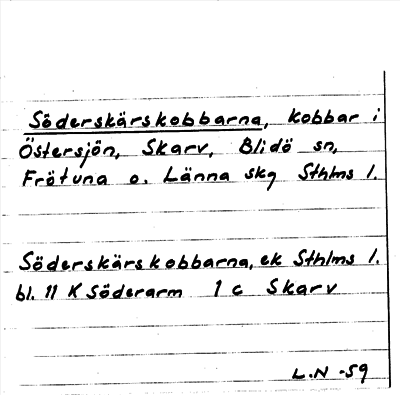 Söderskärskobbarna, kobbar i
Östersjön, Skarv, Blidö sn,
Frötuna o. Länna skg Sthlms l.
Söderskärskobbarna, ek Sthlms l.
bl. 11 K Söderarm 1 c Skarv
L.N -59